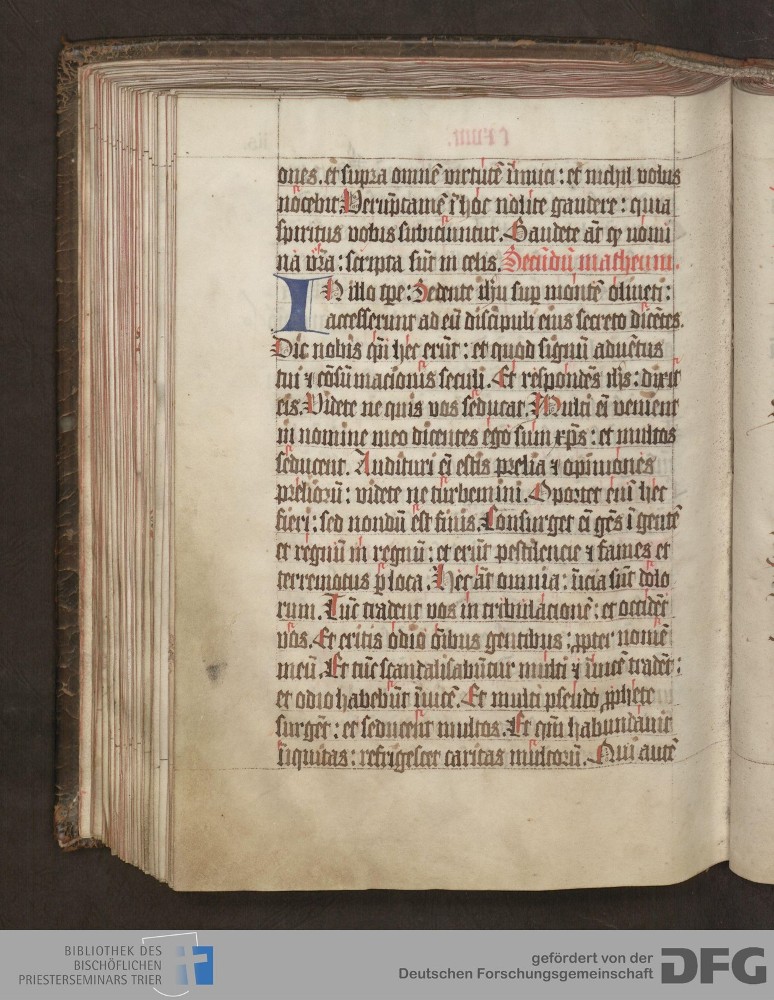 ones. et supra omnē virtutē inimici : et nichil vobis
nocebit. Verūptamē ī hoc nolite gaudere : quia
spiritus vobis subiciuntur. Gaudete aūt qͥ nomi
na vr̄a : scripta sūt in celis. Secūdū matheum.
IN illo tp̄e : Sedente ihū sup̱ montē oliueti :
accesserunt ad eū discipuli eius secreto dicētes.
Dic nobis qn̄ hec erūt : et quod signū aduētus
tui ⁊ cōsūmacionis seculi. Et respondēs ihs̄ : dixit
eis. Videte ne quis vos seducat. Multi eī venient
in nomine meo dicentes ego sum xp̄s : et multos
seducent. Audituri eī estis prelia ⁊ opiniones
preliorū : videte ne turbemini. Oportet enī hec
fieri : sed nondū est finis. Consurget eī gēs ī gentē
et regnū in regnū : et erūt pestilencie ⁊ fames et
terremotus p̱ loca. Hec aūt omnia : inicia sūt dolo
rum. Tūc tradent vos in tribulacionē : et occidēt
vos. Et eritis odio oībus gentibus : ꝓpter nomē
meū. Et tūc scandalisabūtur multi ⁊ īuicē tradēt :
et odio habebūt īuicē. Et multi pseudo ꝓphete
surgēt : et seducēt multos. Et qm̄ habundauit
iniquitas : refrigescet caritas multorū. Qui autē
BIBLIOTHEK DES
BISCHÖFLICHEN
PRIESTERSEMINARS TRIER
gefördert von der
Deutschen Forschungsgemeinschaft DFG